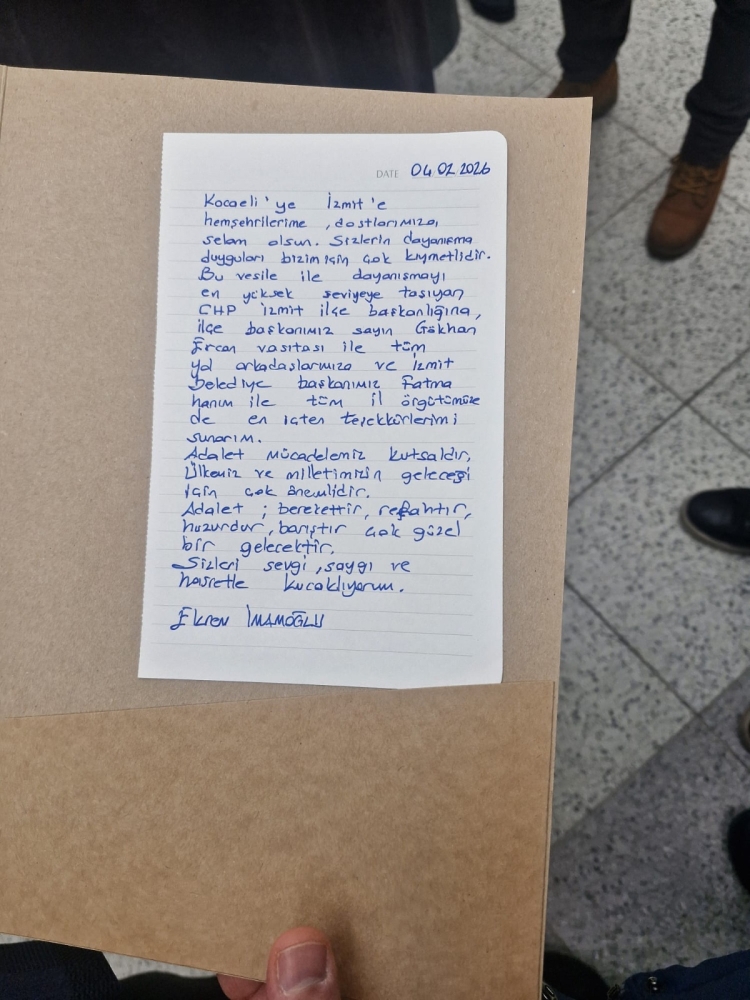 DATE 04 02 2026
Kocaeli'ye İzmit'e
hemşehrilerime, dostlarımıza,
selam olsun. Sizlerin dayanışma
duyguları bizim için çok kıymetlidir.
Bu vesile ile dayanışmayı
en yüksek seviyeye taşıyan
CHP İzmit ilçe başkanlığına,
ilçe başkanımız sayın Gökhan
Ercan vasıtası ile tüm
yol arkadaşlarımıza ve İzmit
Belediye başkanımız Fatma
hanım ile tüm il örgütümüze
de en içten teşekkürlerimi
sunarım.
Adalet mücadelemiz kutsaldır,
Ülkemiz ve milletimizin geleceği
için çok önemlidir.
Adalet ; berekettir, refahtır,
huzurdur, barıştır çok güzel
bir gelecektir.
Sizleri sevgi, saygı ve
hasretle kucaklıyorum.
Ekrem İMAMOĞLU